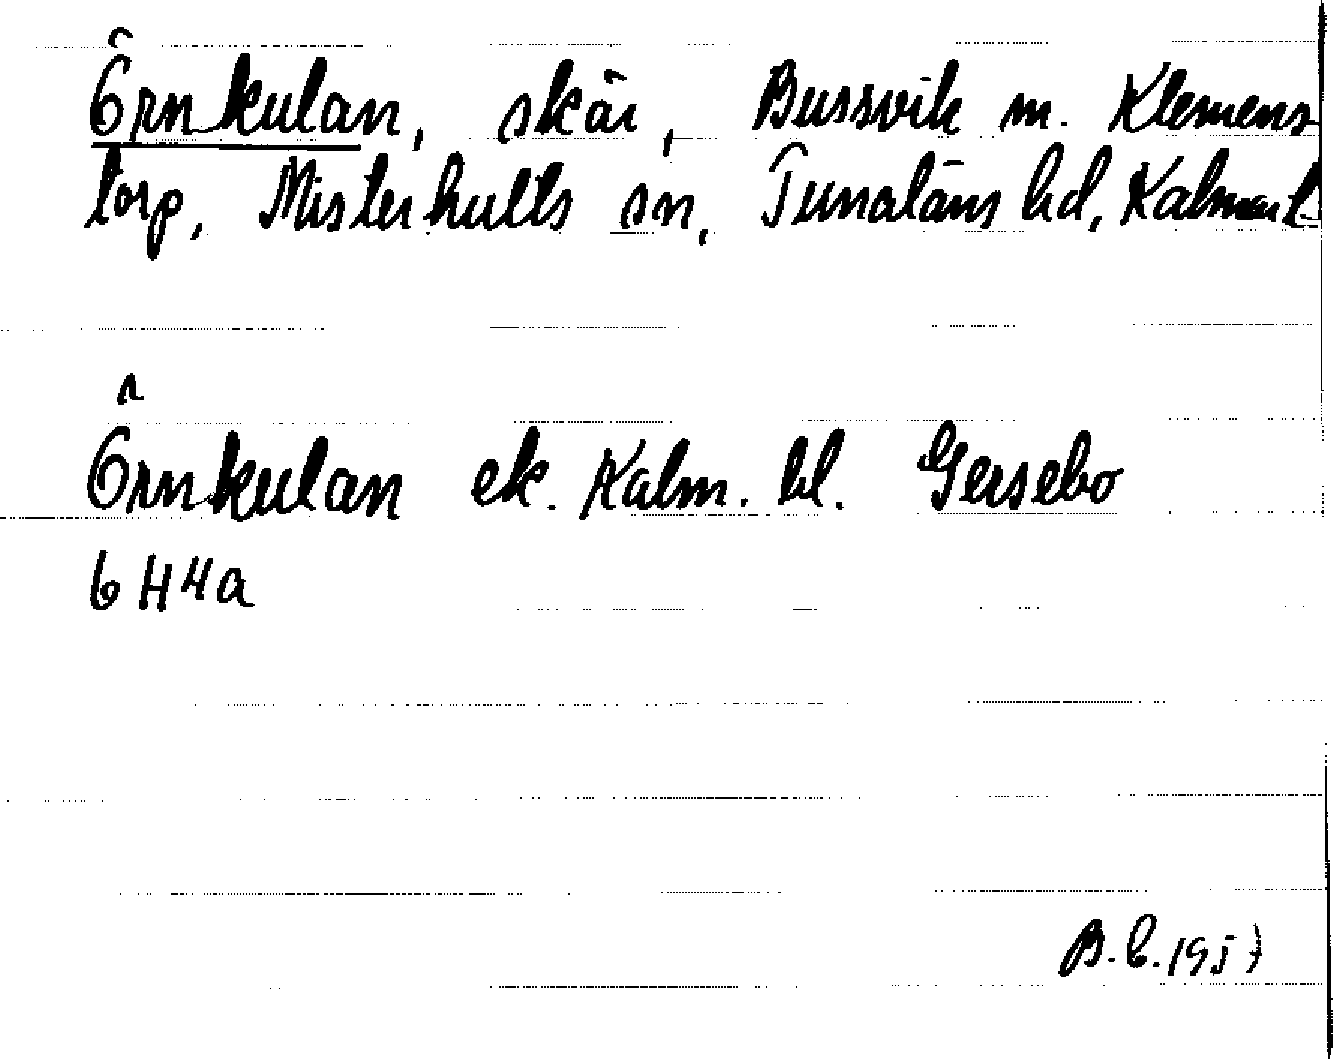 Örnkulan, skär, Bussvik m. Klemens
torp, Misterhults sn, Tunaläns hd, Kalmar l
Örnkulan ek. Kalm. bl. Gersebo
6 H 4a
B.C. 1957